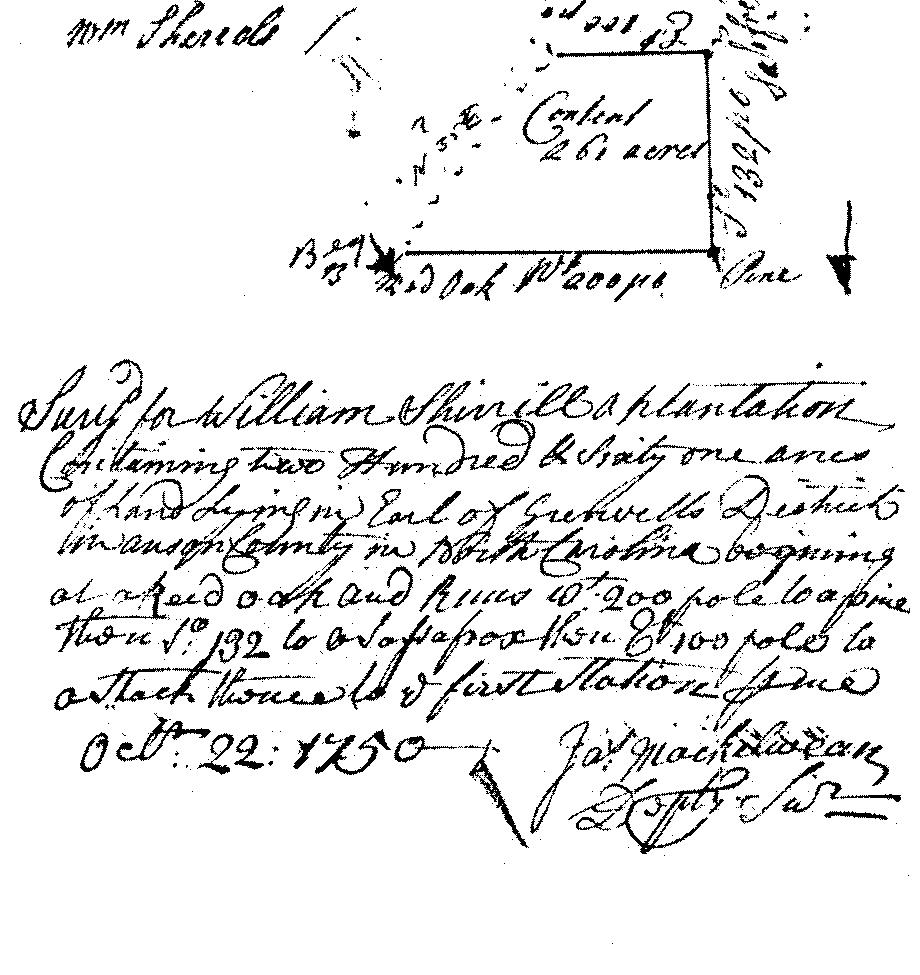 Wm Sherrels
B
Content
261 acres
So 132 po
N
Beg
B
Red Oak Wt 200 po
Pine
Survd for William Shirrill a plantation
Containing two Hundred & Sixty one acres
of Land Lying in Earl of Grenvells District
in anson County in North Carolina begining
at a Reed oak and Runs Wt 200 pole to a pine
then So 132 to a Sasafrox then Et 100 pole to
a Stack thence to ye first Station
Octbr. 22: 1750
Jas. Mackilwean
Depty Sur